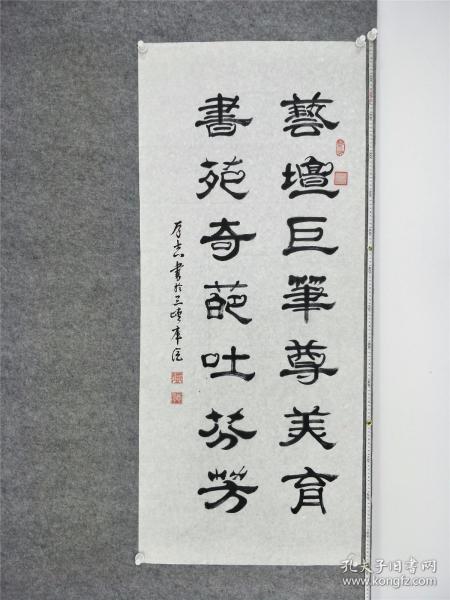 藝壇巨筆尊美育
書苑奇葩吐芬芳
書於三峡
孔夫子旧书网
www.kongfz.com